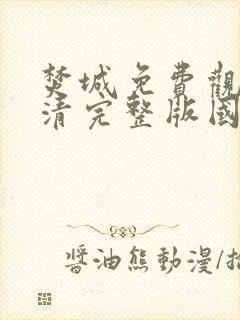 焚城免費觀
清完整版國
醬油熊動漫/拍